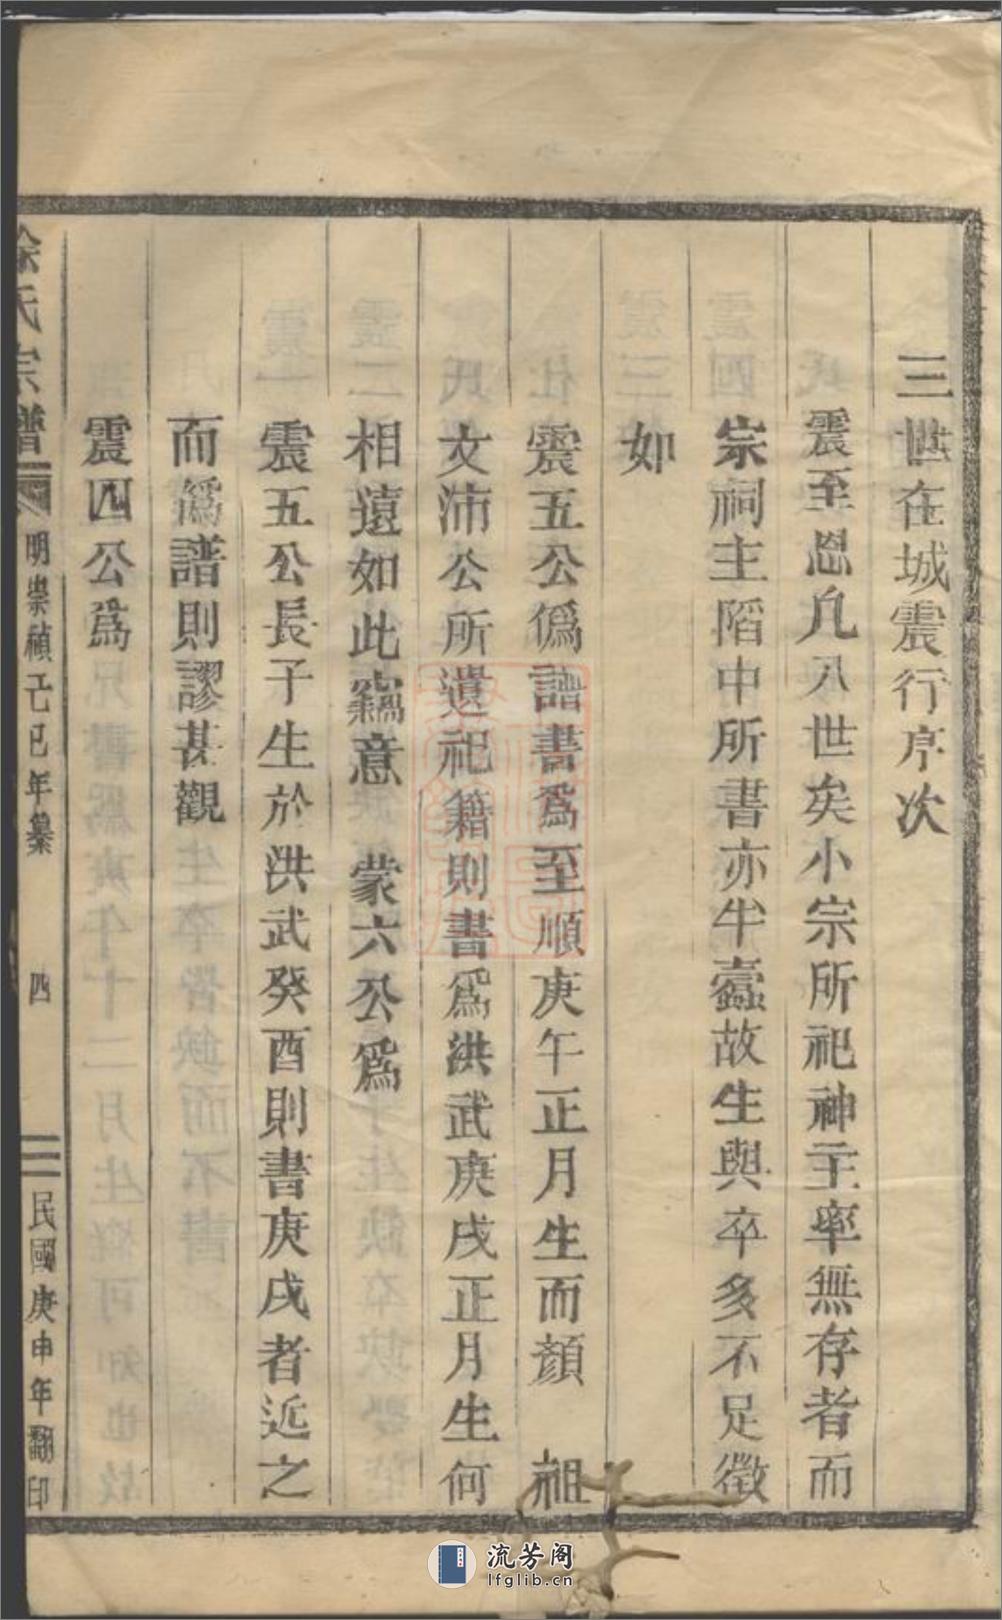 三世在城震行序次
震至恩凡八世矣小宗所祀神主率無存者而
宗祠主陷中所書亦半蠹故生與卒多不足徵
如
震五公僞譜書爲至順庚午正月生而顏 祖
文沛公所遺祀籍則書爲洪武庚戌正月生何
相遠如此竊意 蒙六公爲
震五公長子生於洪武癸酉則書庚戌者近之
而僞譜則謬甚觀
震四公爲
徐氏宗譜 明崇禎己巳年纂 四 民國庚申年翻印
流芳閣
lfglib.cn